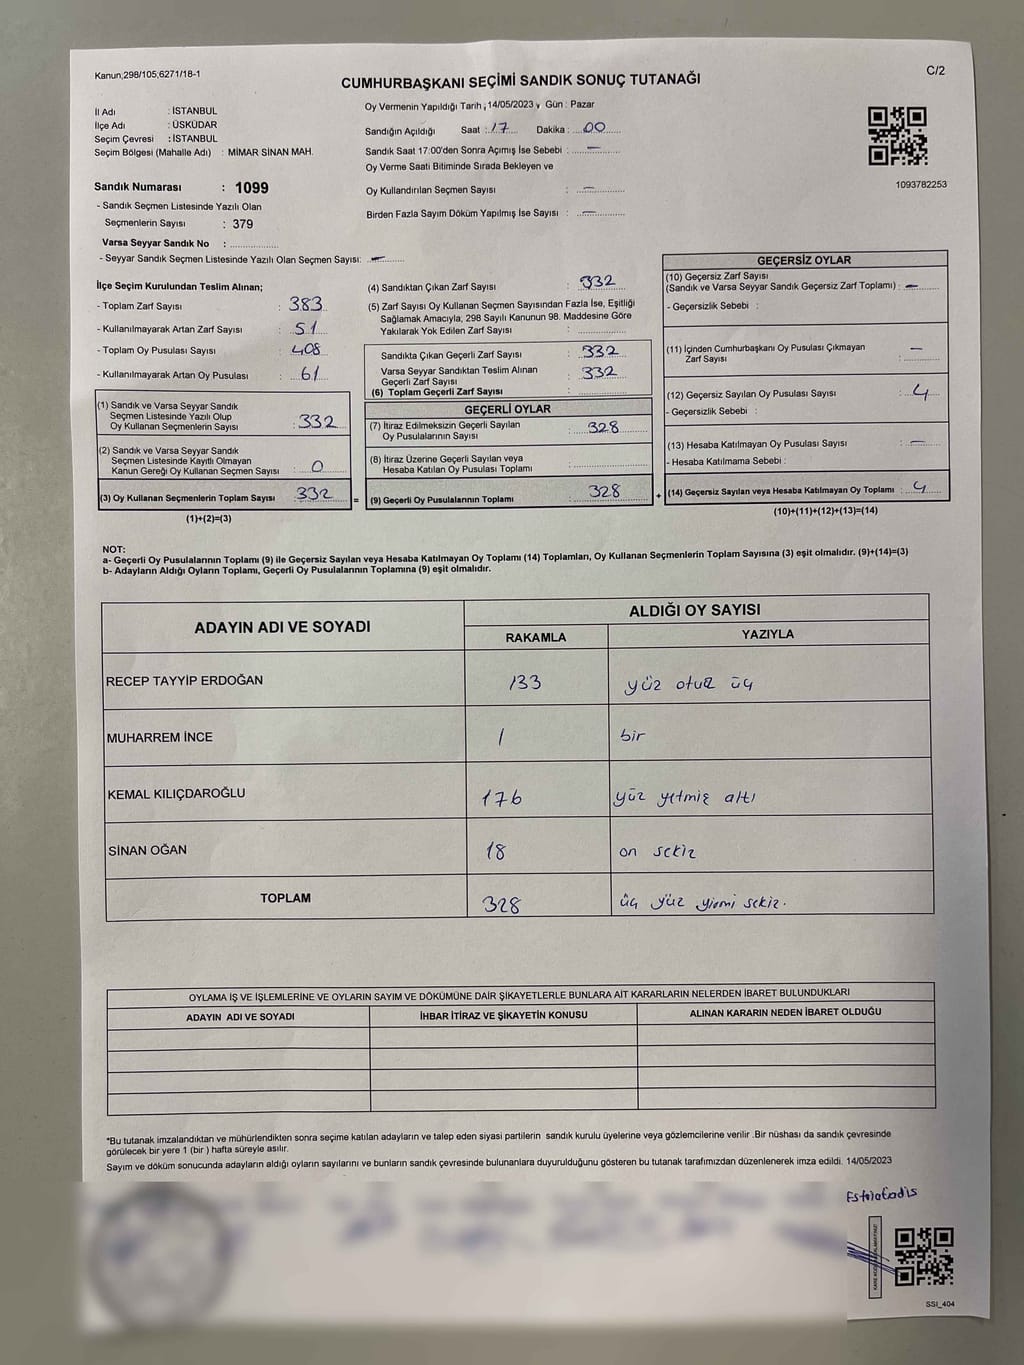 Kanun;298/105;6271/18-1
C/2
CUMHURBAŞKANI SEÇİMİ SANDIK SONUÇ TUTANAĞI
İl Adı : İSTANBUL
İlçe Adı : ÜSKÜDAR
Seçim Çevresi : İSTANBUL
Seçim Bölgesi (Mahalle Adı) : MİMAR SİNAN MAH.
Sandık Numarası : 1099
- Sandık Seçmen Listesinde Yazılı Olan
Seçmenlerin Sayısı : 379
Varsa Seyyar Sandık No : ................
- Seyyar Sandık Seçmen Listesinde Yazılı Olan Seçmen Sayısı: —
Oy Vermenin Yapıldığı Tarih ; 14/05/2023 , Gün : Pazar
Sandığın Açıldığı Saat : 17 Dakika : 00
Sandık Saat 17:00'den Sonra Açımış İse Sebebi : —
Oy Verme Saati Bitiminde Sırada Bekleyen ve
Oy Kullandırılan Seçmen Sayısı : —
Birden Fazla Sayım Döküm Yapılmış İse Sayısı : —
1093782253
İlçe Seçim Kurulundan Teslim Alınan;
- Toplam Zarf Sayısı : 383
- Kullanılmayarak Artan Zarf Sayısı : 51
- Toplam Oy Pusulası Sayısı : 408
- Kullanılmayarak Artan Oy Pusulası : 61
(1) Sandık ve Varsa Seyyar Sandık
Seçmen Listesinde Yazılı Olup
Oy Kullanan Seçmenlerin Sayısı : 332
(2) Sandık ve Varsa Seyyar Sandık
Seçmen Listesinde Kayıtlı Olmayan
Kanun Gereği Oy Kullanan Seçmen Sayısı : 0
(3) Oy Kullanan Seçmenlerin Toplam Sayısı : 332 =
(1)+(2)=(3)
(4) Sandıktan Çıkan Zarf Sayısı : 332
(5) Zarf Sayısı Oy Kullanan Seçmen Sayısından Fazla İse, Eşitliği
Sağlamak Amacıyla, 298 Sayılı Kanunun 98. Maddesine Göre
Yakılarak Yok Edilen Zarf Sayısı :
Sandıkta Çıkan Geçerli Zarf Sayısı : 332
Varsa Seyyar Sandıktan Teslim Alınan
Geçerli Zarf Sayısı : 332
(6) Toplam Geçerli Zarf Sayısı :
GEÇERLİ OYLAR
(7) İtiraz Edilmeksizin Geçerli Sayılan
Oy Pusulalarının Sayısı : 328
(8) İtiraz Üzerine Geçerli Sayılan veya
Hesaba Katılan Oy Pusulası Toplamı :
(9) Geçerli Oy Pusulalarının Toplamı : 328 +
GEÇERSİZ OYLAR
(10) Geçersiz Zarf Sayısı
(Sandık ve Varsa Seyyar Sandık Geçersiz Zarf Toplamı) : —
- Geçersizlik Sebebi :
(11) İçinden Cumhurbaşkanı Oy Pusulası Çıkmayan
Zarf Sayısı : —
(12) Geçersiz Sayılan Oy Pusulası Sayısı : 4
- Geçersizlik Sebebi :
(13) Hesaba Katılmayan Oy Pusulası Sayısı : —
- Hesaba Katılmama Sebebi :
(14) Geçersiz Sayılan veya Hesaba Katılmayan Oy Toplamı : 4
(10)+(11)+(12)+(13)=(14)
NOT:
a- Geçerli Oy Pusulalarının Toplamı (9) ile Geçersiz Sayılan veya Hesaba Katılmayan Oy Toplamı (14) Toplamları, Oy Kullanan Seçmenlerin Toplam Sayısına (3) eşit olmalıdır. (9)+(14)=(3)
b- Adayların Aldığı Oyların Toplamı, Geçerli Oy Pusulalarının Toplamına (9) eşit olmalıdır.
ADAYIN ADI VE SOYADI
ALDIĞI OY SAYISI
RAKAMLA YAZIYLA
RECEP TAYYİP ERDOĞAN 133 yüz otuz üç
MUHARREM İNCE 1 bir
KEMAL KILIÇDAROĞLU 176 yüz yetmiş altı
SİNAN OĞAN 18 on sekiz
TOPLAM 328 üç yüz yirmi sekiz.
OYLAMA İŞ VE İŞLEMLERİNE VE OYLARIN SAYIM VE DÖKÜMÜNE DAİR ŞİKAYETLERLE BUNLARA AİT KARARLARIN NELERDEN İBARET BULUNDUKLARI
ADAYIN ADI VE SOYADI İHBAR İTİRAZ VE ŞİKAYETİN KONUSU ALINAN KARARIN NEDEN İBARET OLDUĞU
*Bu tutanak imzalandıktan ve mühürlendikten sonra seçime katılan adayların ve talep eden siyasi partilerin sandık kurulu üyelerine veya gözlemcilerine verilir .Bir nüshası da sandık çevresinde
görülecek bir yere 1 (bir ) hafta süreyle asılır.
Sayım ve döküm sonucunda adayların aldığı oyların sayılarını ve bunların sandık çevresinde bulunanlara duyurulduğunu gösteren bu tutanak tarafımızdan düzenlenerek imza edildi. 14/05/2023
SSI_404